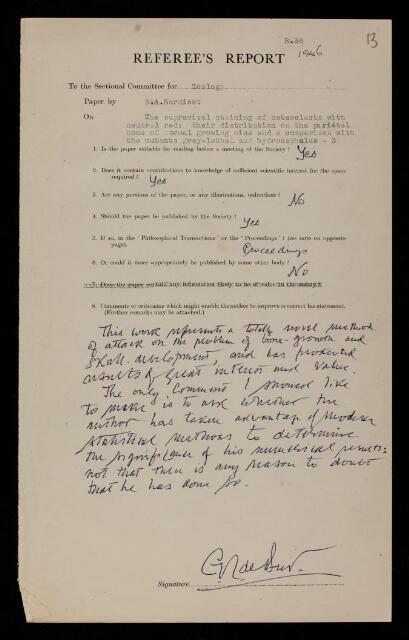 R.38
1946
13
REFEREE'S REPORT
To the Sectional Committee for Zoology
Paper by N.A.Barnicot
On The supravital staining of osteoclasts with
neutral red: their distribution on the parietal
bone of normal growing mice and a comparison with
the mutants grey-lethal and hydrocephalus - 3
1. Is the paper suitable for reading before a meeting of the Society? Yes
2. Does it contain contributions to knowledge of sufficient scientific interest for the space
required? Yes
3. Are any portions of the paper, or any illustrations, redundant? No
4. Should the paper be published by the Society? Yes
5. If so, in the 'Philosophical Transactions' or the 'Proceedings'? (see note on opposite
page). Proceedings
6. Or could it more appropriately be published by some other body? No
7. Does the paper contain any information likely to be of value to the enemy?
8. Comments or criticisms which might enable the author to improve or correct his statement.
(Further remarks may be attached.)
This work represents a totally novel method
of attack on the problem of bone-growth and
skull-development, and has produced
results of great interest and value.
The only comment I should like
to make is to ask whether the
author has taken advantage of modern
statistical methods to determine
the significance of his numerical results:
not that there is any reason to doubt
that he has done so.
Signature